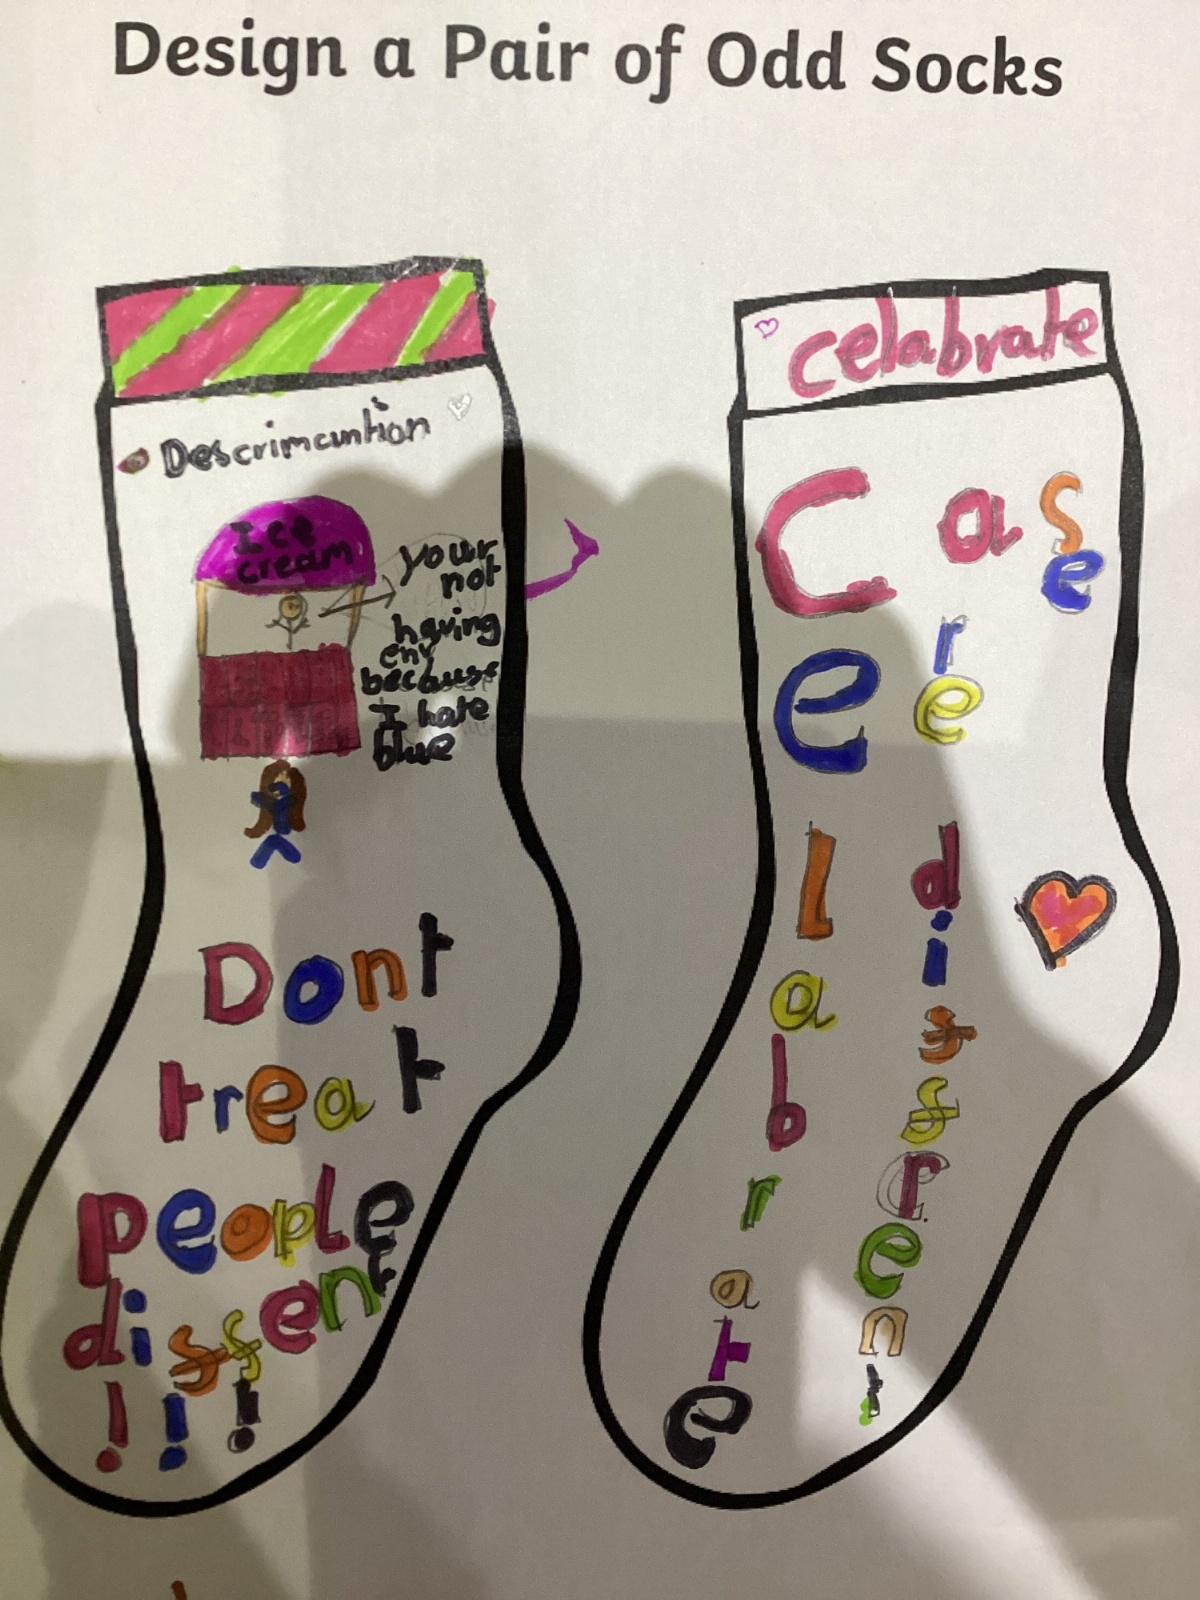 Design a Pair of Odd Socks
Descrimcuntion
Ice
cream
your
not
having
eny
because
I hate
blue
Dont
treat
people
diffent
!!!
celabrate
Celabrate
Case
re
diffrent